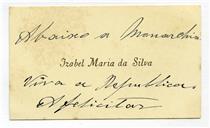 Abaixo a Monarchia
Izabel Maria da Silva
Viva a Republica
A felicitar